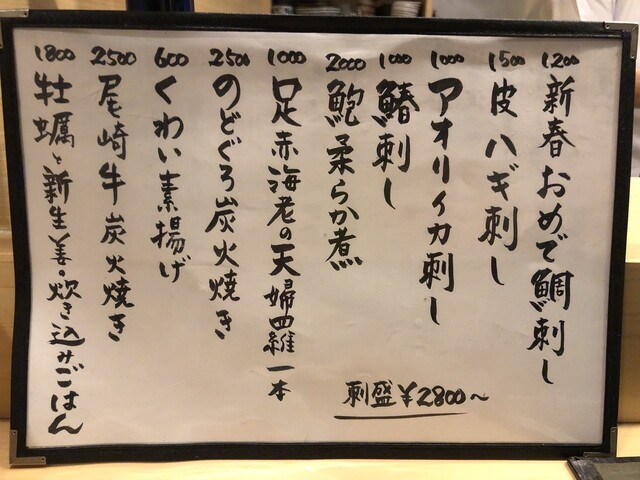 1200 新春おめで鯛刺し
1500 皮ハギ刺し
1000 アオリイカ刺し
1000 鰆刺し
2000 鮑柔らか煮
1000 足赤海老の天婦羅一本
2500 のどぐろ炭火焼き
600 くわい素揚げ
2500 尾崎牛炭火焼き
1800 牡蠣と新生姜の炊き込みごはん
刺盛¥2800〜